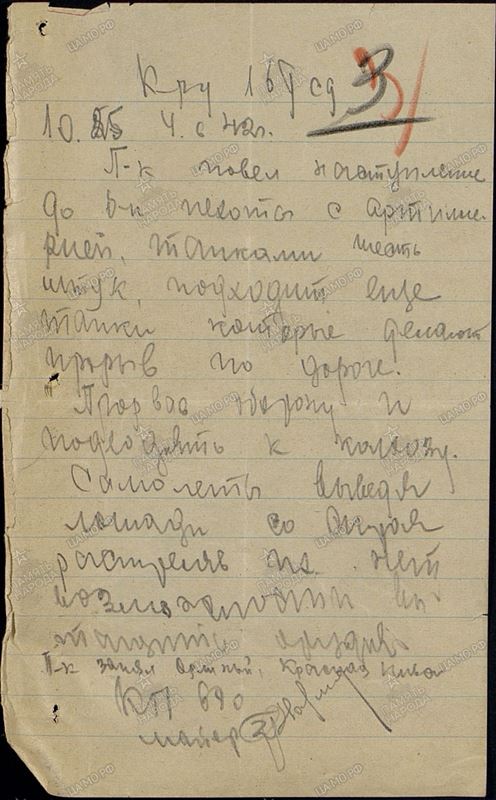 Кру 167 сд 3
10.25 4.6 42г.
П-к повел наступление
до б-н пехоты с Артиле
рией, танками шесть
штук, подходит еще
танки которые делают
прорыв по дороге.
Прорвав оборону и
подходить к
Самолеты выведя
лошади со строя
растреляв их. нет
возможности вы
тащить орудия.
П-к занял Красная Нива
КП 690
майор